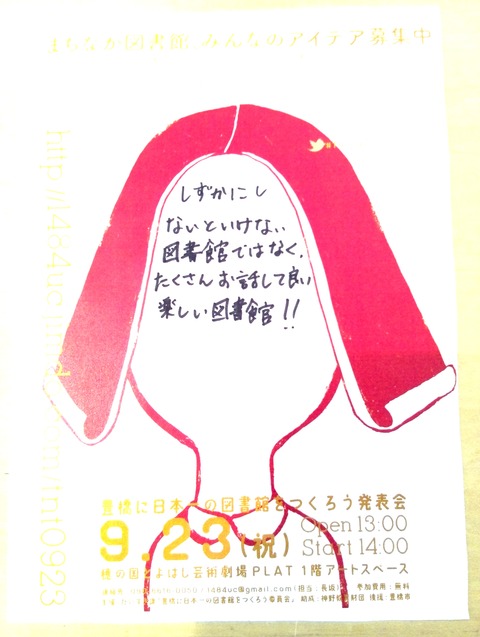 まちなか図書館 みんなのアイデア募集中
しずかにし
ないといけない
図書館ではなく、
たくさんお話して良い
楽しい図書館!!
豊橋に日本一の図書館をつくろう発表会
9.23(祝) Open 13:00
Start 14:00
穂の国とよはし芸術劇場PLAT 1階アートスペース
1484uc@gmail.com(担当:長坂) 参加費用:無料
「豊橋に日本一の図書館をつくろう委員会」 後援:豊橋市